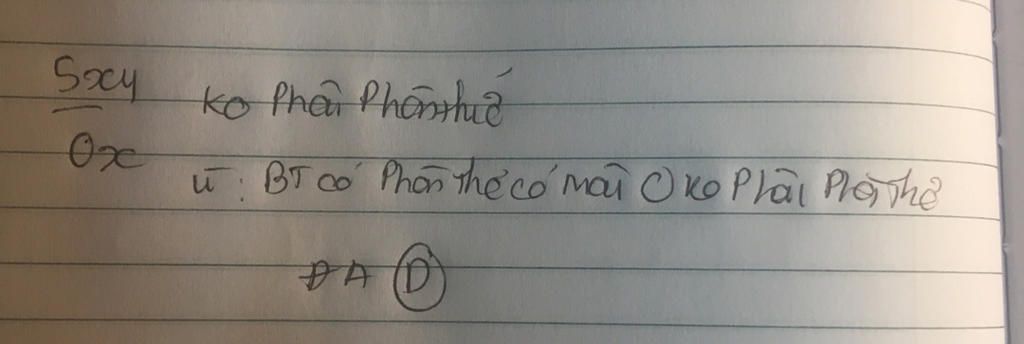 5xy
0x
ko phải phân thức
vì : BT có phân thế có mãi 0 ko phải phân thế
ĐA D